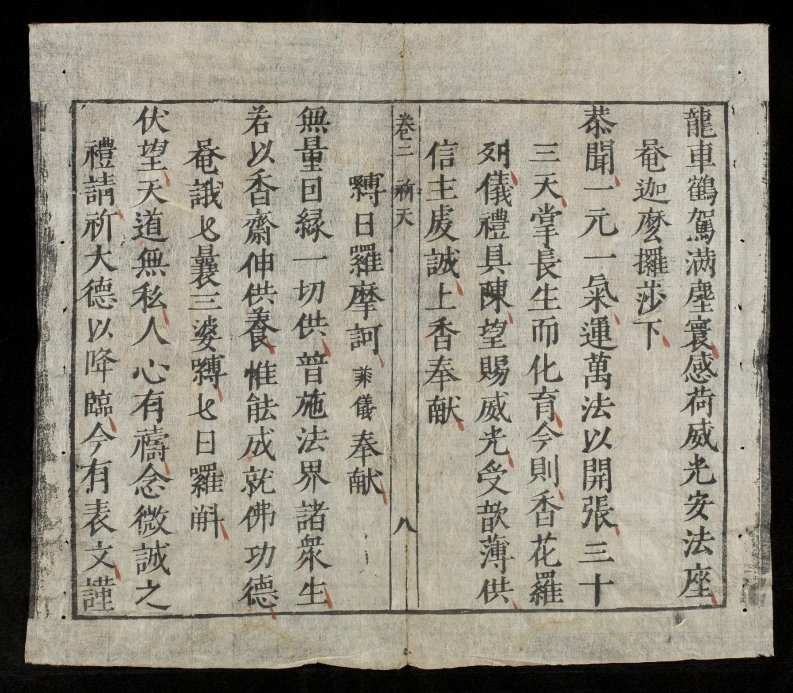 龍車鶴駕滿塵寰感荷威光安法座
菴迦麽攞莎下
恭聞一元一氣運萬法以開張三十
三天掌長生而化育今則香花羅
列儀禮具陳望賜威光受歆薄供
信主虔誠上香奉献
卷二 祈天 八
嚩日羅摩訶 兼儀 奉献
無量因縁一切供普施法界諸衆生
若以香齋伸供養惟能成就佛功德
菴誐七曩三婆嚩七日羅斛
伏望天道無私人心有禱念微誠之
禮請祈大德以降臨今有表文謹